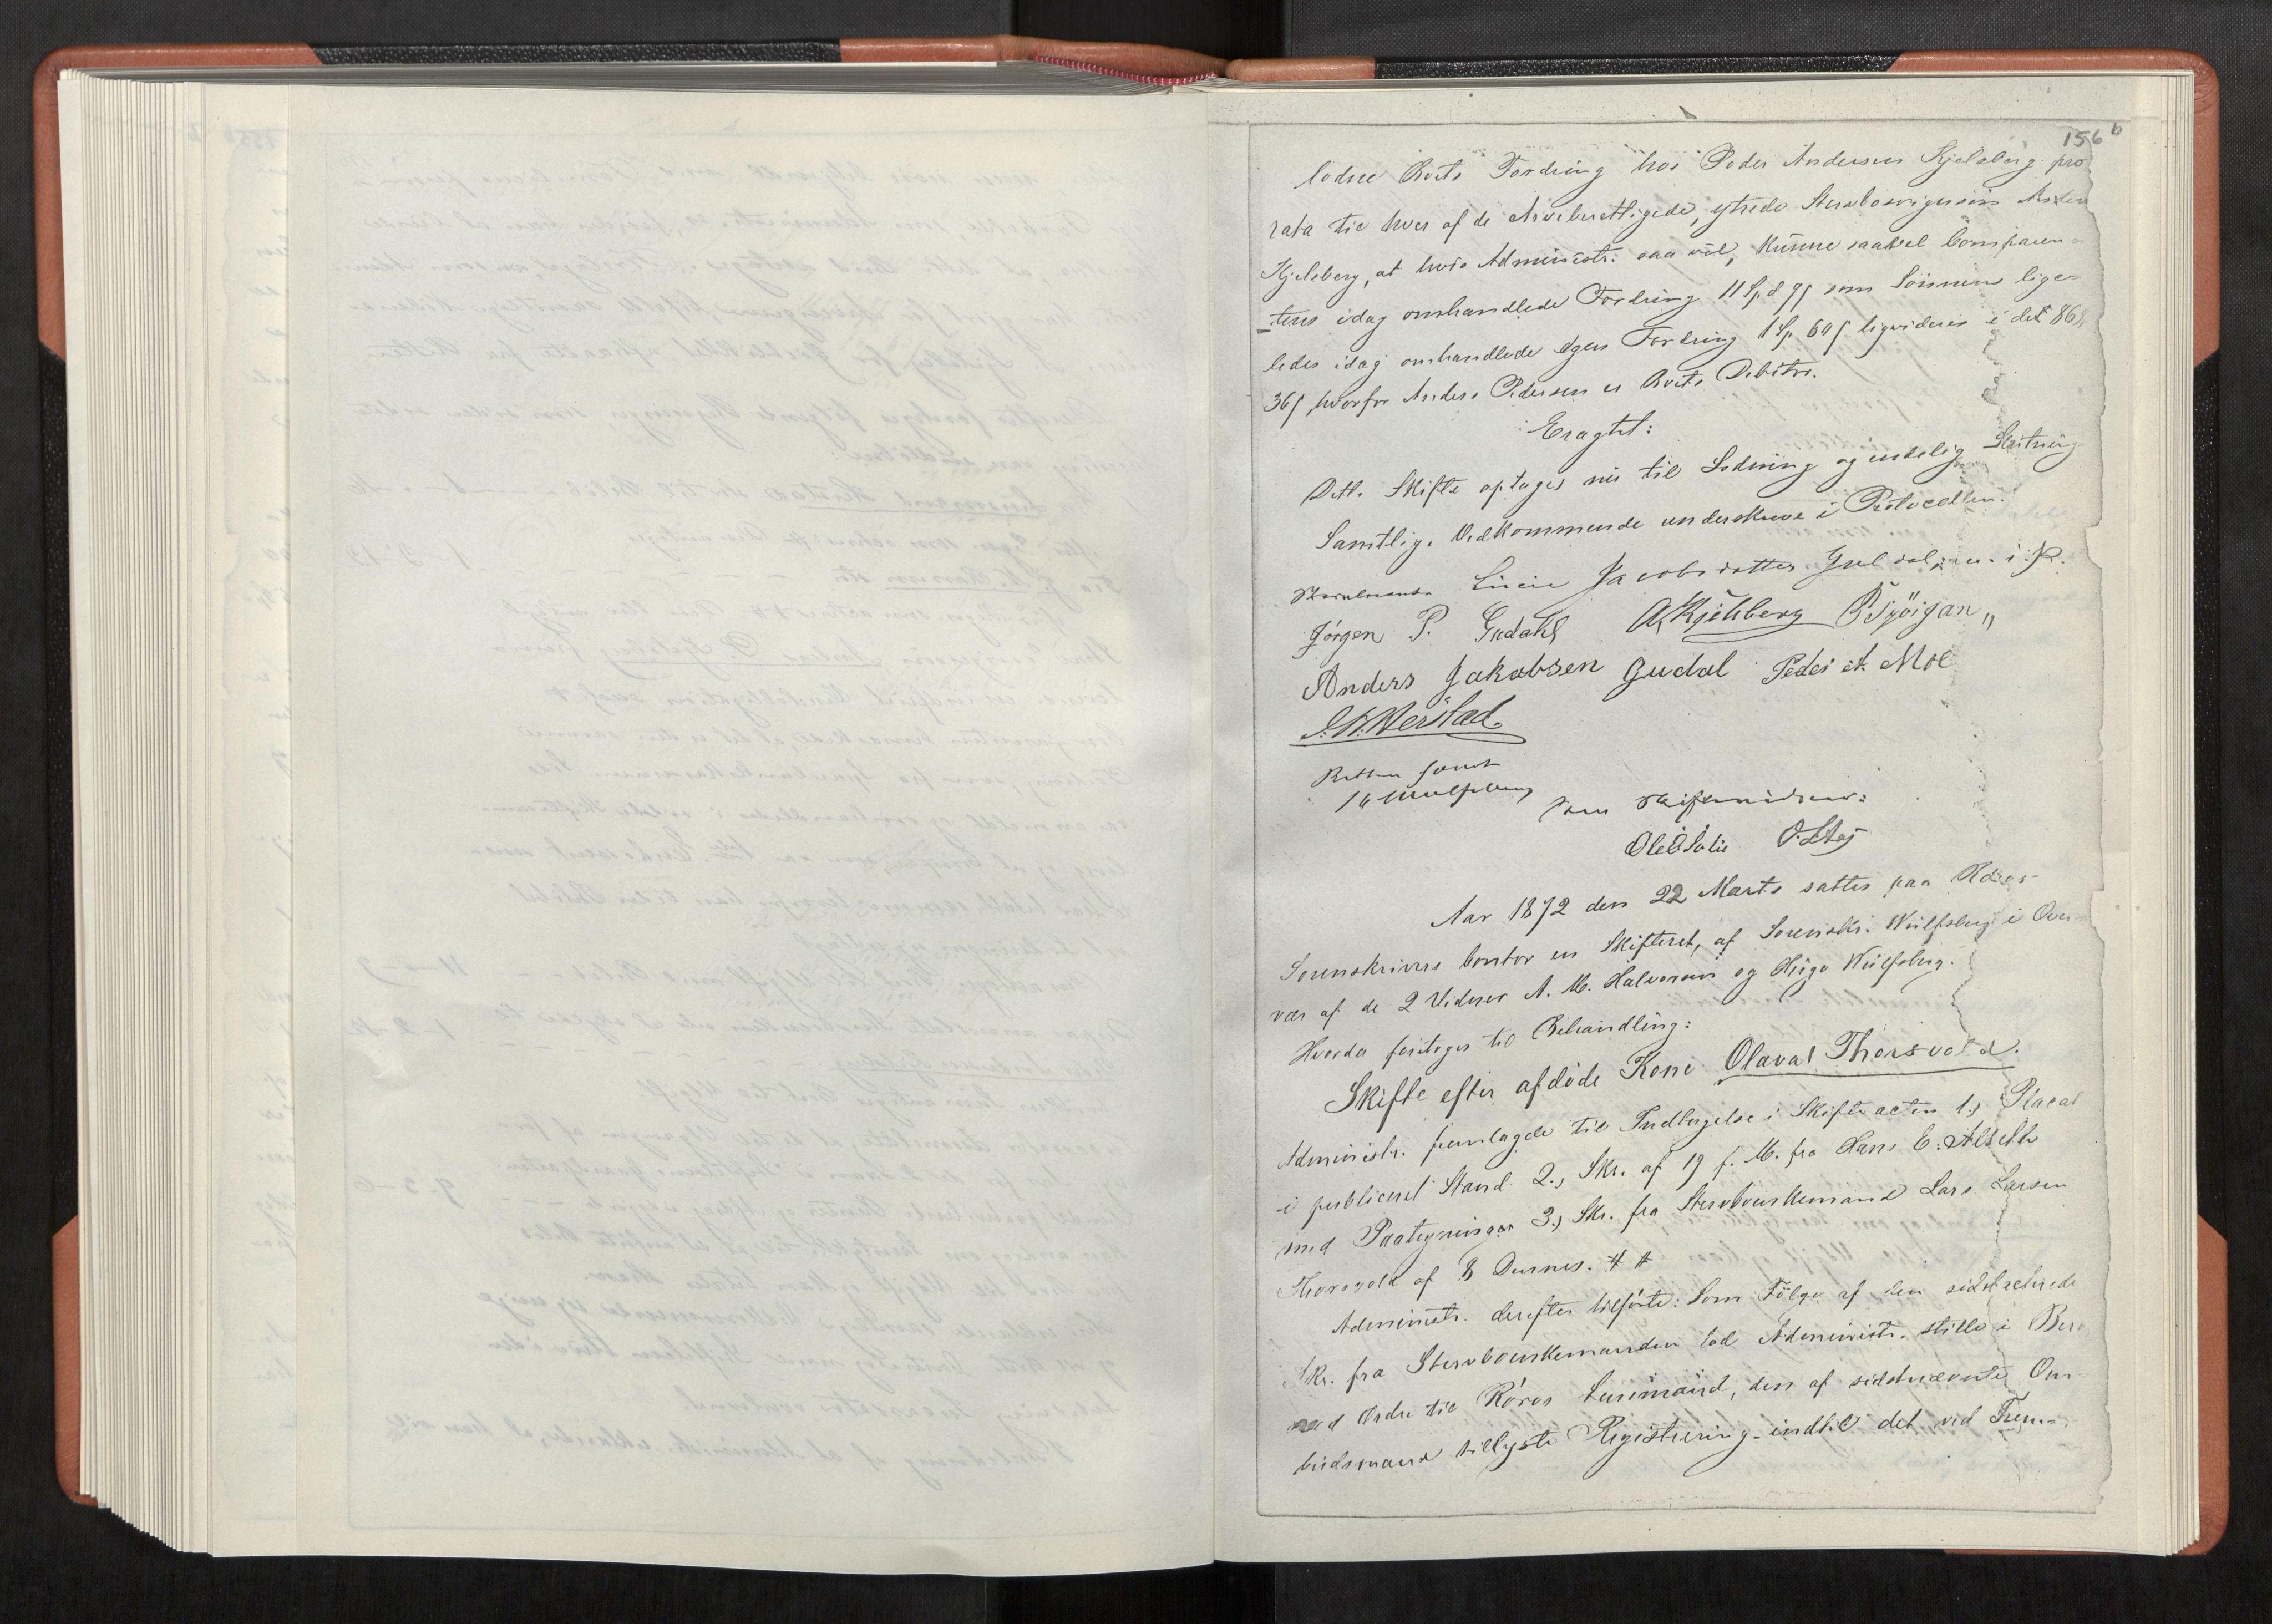 156 b
lodne Boets Fordring hos Peder Andersen Kjelsberg pro
rata til hver af de Arveberettigede, ytrede Stervbosvigersøn Anders
Kjelsberg, at hvis Administr. saa vil, kunne saavel Comparen-
tens idag omhandlede Fordring 11 Spd 9 ſ som Sønnens lige-
ledes idag omhandlede Fordring 1 Sp 69 ſ liqvideres i de
36 ſ, hvorfor Anders Pedersen er Boets Debitor.
Eragtet:
Dette Skifte optages nu til Lodning og endelig Slutning
Samtlige Vedkommende underskreve i Protocollen.
Lucie Jacobsdatter m. i. P.
Jørgen P. Gudahl A. Kjelsberg
Anders Jakobsen Gudal Peder A. Moe
Retten hævet
Wulfsberg
Som Skiftevidner:
Ole O Solie O. Støs
Aar 1872 den 22 Marts sattes paa Røros
Sorenskrivers Contor en Skifteret, af Sorenskr. Wulfsberg i Over-
vær af de 2 Vidner A. M. Halvorsen og Hugo Wulfsberg.
Hvorda foretoges til Behandling:
Skifte efter afdøde Kone Olava Thorsvold.
Administr. fremlagde til Indtagelse i Skifteacten 1., Placat
i publiceret Stand 2., Skr. af 19 f. M. fra Hans C. Alseth
med Paategninger 3., Skr. fra Stervboenkemand Lars Larsen
Thorsvold af 8 Dennes. # #
Administr. derefter tilførte: Som Følge af den sidstacterede
Skr. fra Stervboenkemanden lod Administr. stille i Bero
med Ordre til Røros Lensmand, den af sidstnævnte Om-
budsmand tillyste Registrering indtil det ved Frem-